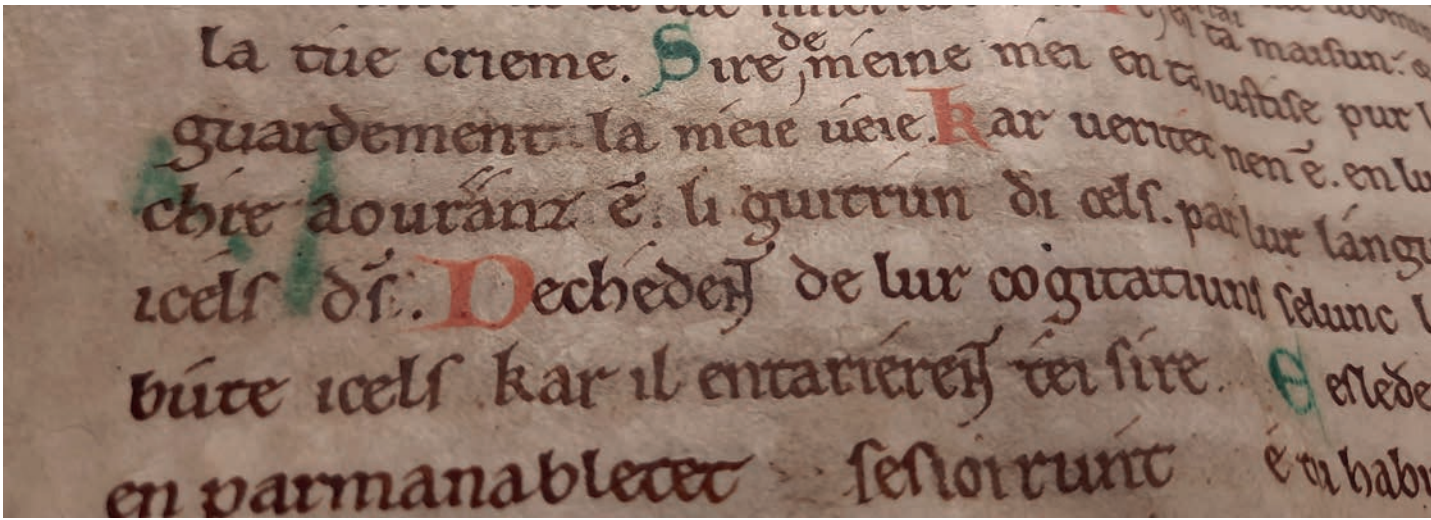 la tue crieme. Sire de meine mei en ta iustise pur l
guardement la meie ueie. Kar ueritet nen ē. en lu
chre aouránz ē. li guitrun di cels. par lur langu
icels ds̄. Decheden de lur cogitatiuns selunc l
búte icels kar il entariéren tei sire. E eslede
en parmanabletet sesioirrunt é tu habi